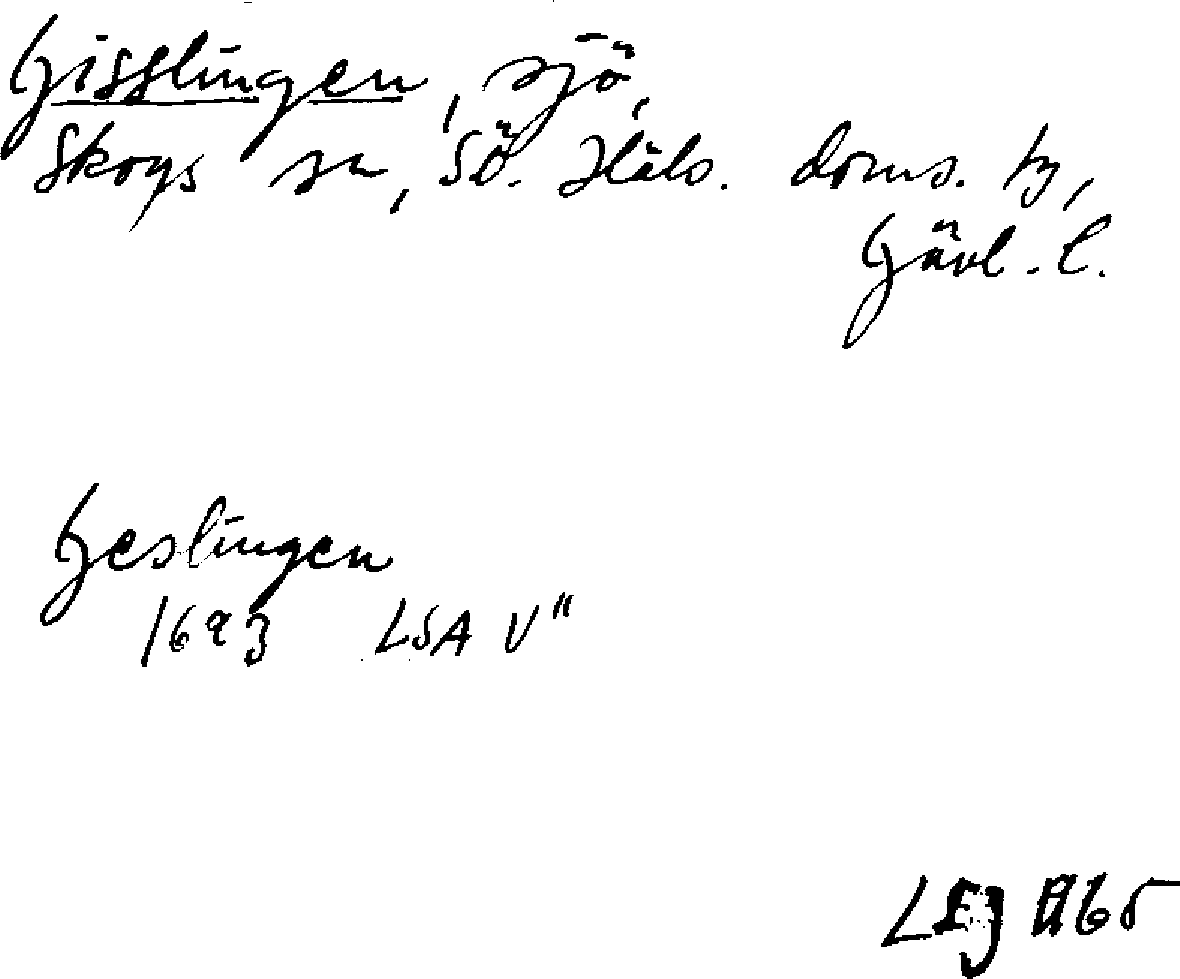 Gisslingen, sjö,
Skogs sn, Sö. Häls. doms. tg,
Gävl. l.
Geslingen
1693 LSA V"